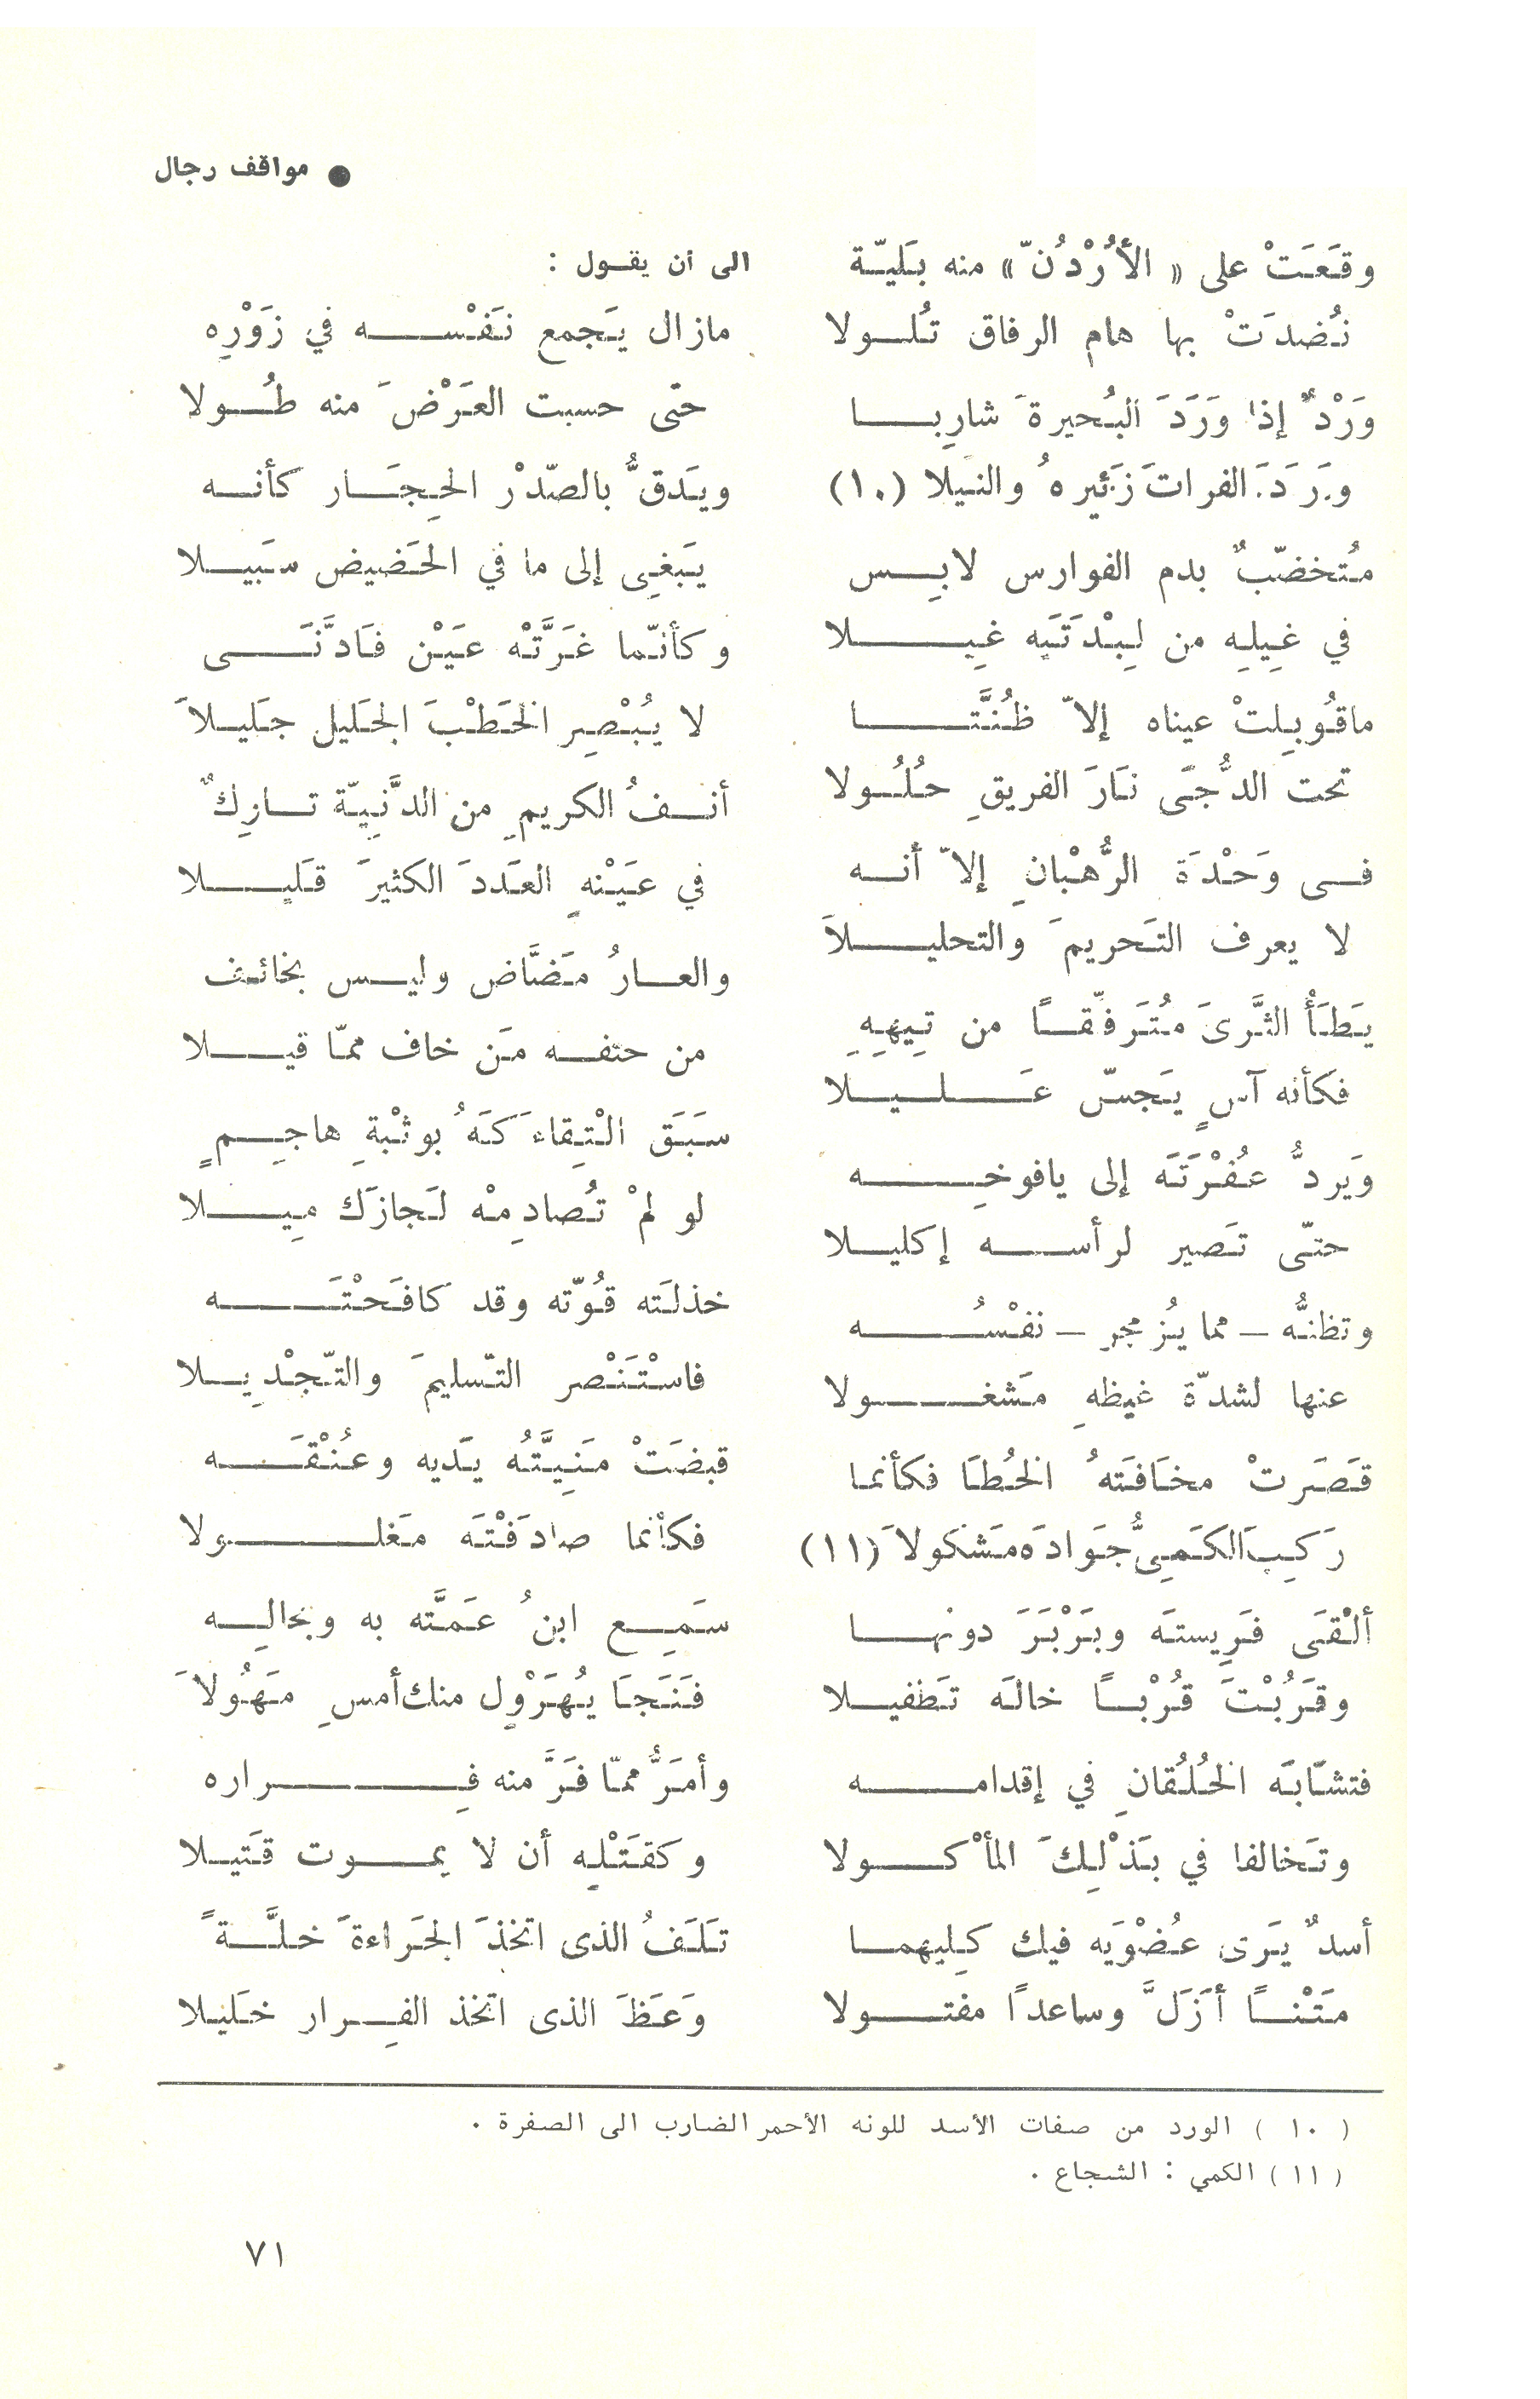 ● مواقف رجال
وقَعَتْ على « الأُرْدُنّ » منه بَليّة
نُضدَتْ بها هام الرفاق تُلولا
وَرْدٌ إذا وَرَدَ البُحيرةَ شارِبا
وَرَدَ الفراتَ زَئيرهُ والنيلا (١٠)
مُتخضّبٌ بدم الفوارس لابِس
في غِيلِه من لِبْدَتَيه غِيلا
ماقُوبِلتْ عيناه إلاّ ظُنَّتا
تحت الدُّجَى نَارَ الفريقِ حُلُولا
فى وَحْدَة الرُّهْبانِ إلاّ أنه
لا يعرف التَحريمَ والتحليلاَ
يَطَأُ الثَّرىَ مُتَرفّقًا من تِيهِهِ
فكأنه آسٍ يَجسّ عَليلا
وَيردُّ عُفْرَتَه إلى يافوخِه
حتّى تَصير لرأسه إكليلا
وتظنُّه – مما يُزمجر – نفْسُه
عنها لشدّة غيظهِ مَشغولا
قَصَرتْ مخَافَتهُ الخُطَا فكأنما
رَكِبَ الكَمِىُّ جَوادَه مَشكولاَ (١١)
ألْقَى فَرِيستَه وبَرْبَرَ دونها
وقَرُبْتَ قُرْبًا خالَه تَطفيلا
فتشَابَه الخُلُقانِ في إقدامه
وتَخالفا في بَذْلِكَ المأْكولا
أسدٌ يَرى عُضْوَيه فيك كِليهما
مَتْنًا أَزَلَّ وساعدًا مفتولا
الى أن يقول :
مازال يَجمع نَفْسه في زَوْرِه
حتّى حسبت العَرْضَ منه طُولا
ويَدقُّ بالصّدْر الحِجَار كأنه
يَبغِى إلى ما في الحَضيض سَبيلا
وكأنّما غَرَّتْه عَيْن فَادَّنَى
لا يُبْصِر الخَطْبَ الجَليل جَليلاَ
أنفُ الكريمِ من الدَّنِيّة تارِكٌ
في عَيْنهِ العَددَ الكثيرَ قَليلا
والعارُ مَضَّاض وليس بخائف
من حتفه مَن خاف ممّا قيلا
سَبَق الْتِقاءَكَهُ بوثْبةِ هاجِمٍ
لو لمْ تُصادِمْه لَجازَك مِيلا
خذلَته قُوّته وقد كافَحْتَه
فاسْتَنْصر التّسليمَ والتّجْدِيلا
قبضَتْ مَنِيَّتُه يَديه وعُنْقَه
فكأنما صادَفْتَه مَغلولا
سَمِع ابنُ عَمَّته به وبحالِه
فَنَجَا يُهَرْوِل منك أمسِ مَهُولاَ
وأمَرُّ ممّا فَرَّ منه فِراره
وكقَتْلِه أن لا يموت قَتيلا
تَلَفُ الذى اتخذَ الجَراءةَ خلَّةً
وَعَظَ الذى اتخذ الفِرار خَليلا
( ١٠ ) الورد من صفات الأسد للونه الأحمر الضارب الى الصفرة .
( ١١ ) الكمي : الشجاع .
٧١